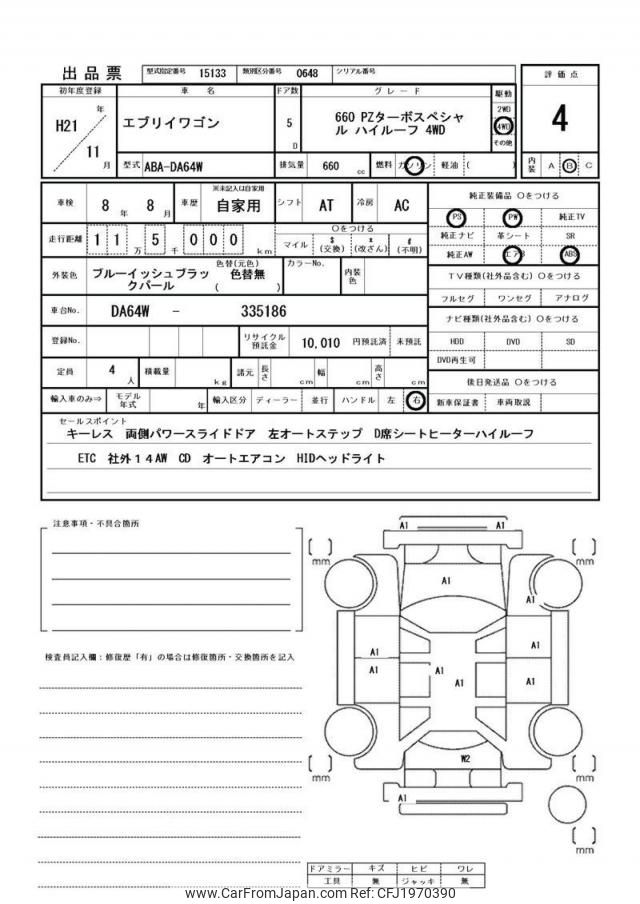 出品票 型式指定番号 15133 類別区分番号 0648 シリアル番号
評価点
4
内装 A B C
初年度登録 車名 ドア数 グレード 駆動
H21 年
11 月
エブリイワゴン
5 D
660 PZターボスペシャル ハイルーフ 4WD
2WD
4WD
その他
型式 ABA-DA64W 排気量 660 cc 燃料 ガソリン 軽油 ( )
車検 8 年 8 月 車歴 ※未記入は自家用 自家用 シフト AT 冷房 AC
走行距離 1 1 万 5 千 0 0 0 km ○をつける
マイル $(交換) x(改ざん) #(不明)
外装色 ブルーイッシュブラックパール 色替(元色) 色替無 ( ) カラーNo. 内装色
車台No. DA64W - 335186
登録No. リサイクル預託金 10,010 円預託済 未預託
定員 4 人 積載量 kg 諸元 長さ cm 幅 cm 高さ cm
輸入車のみ⇒ モデル年式 年 輸入区分 ディーラー 並行 ハンドル 左 右
純正装備品 ○をつける
PS PW 純正TV
純正ナビ 革シート SR
純正AW エアB ABS
TV種類(社外品含む) ○をつける
フルセグ ワンセグ アナログ
ナビ種類(社外品含む) ○をつける
HDD DVD SD
DVD再生可
後日発送品 ○をつける
新車保証書 車両取説
セールスポイント
キーレス 両側パワースライドドア 左オートステップ D席シートヒーターハイルーフ
ETC 社外14AW CD オートエアコン HIDヘッドライト
注意事項・不具合箇所
検査員記入欄：修復歴「有」の場合は修復箇所・交換箇所を記入
A1 A1
mm mm
A1
A1
A1 A1
A1 A1 A1 A1
W2
mm mm
A1
mm
ドアミラー キズ ヒビ ワレ
工具 無 ジャッキ 無
www.CarFromJapan.com Ref: CFJ1970390